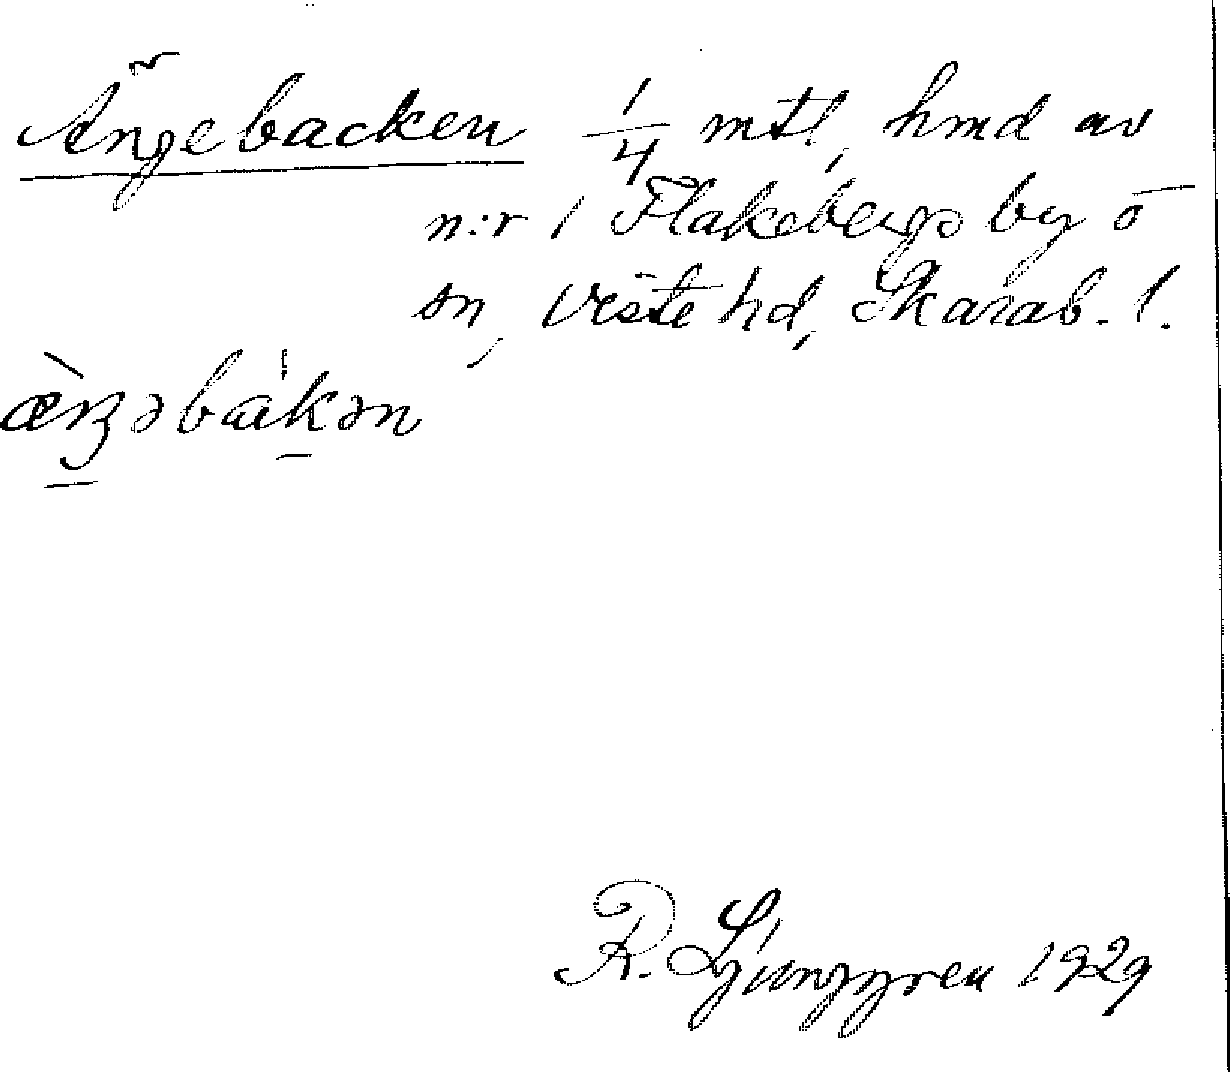 Ängebacken 1/4 mtl, hmd av
n:r 1 Flakebergs by o
sn, Viste hd, Skarab. l.
æ̀ŋəbàkən
R. Ljunggren 1929